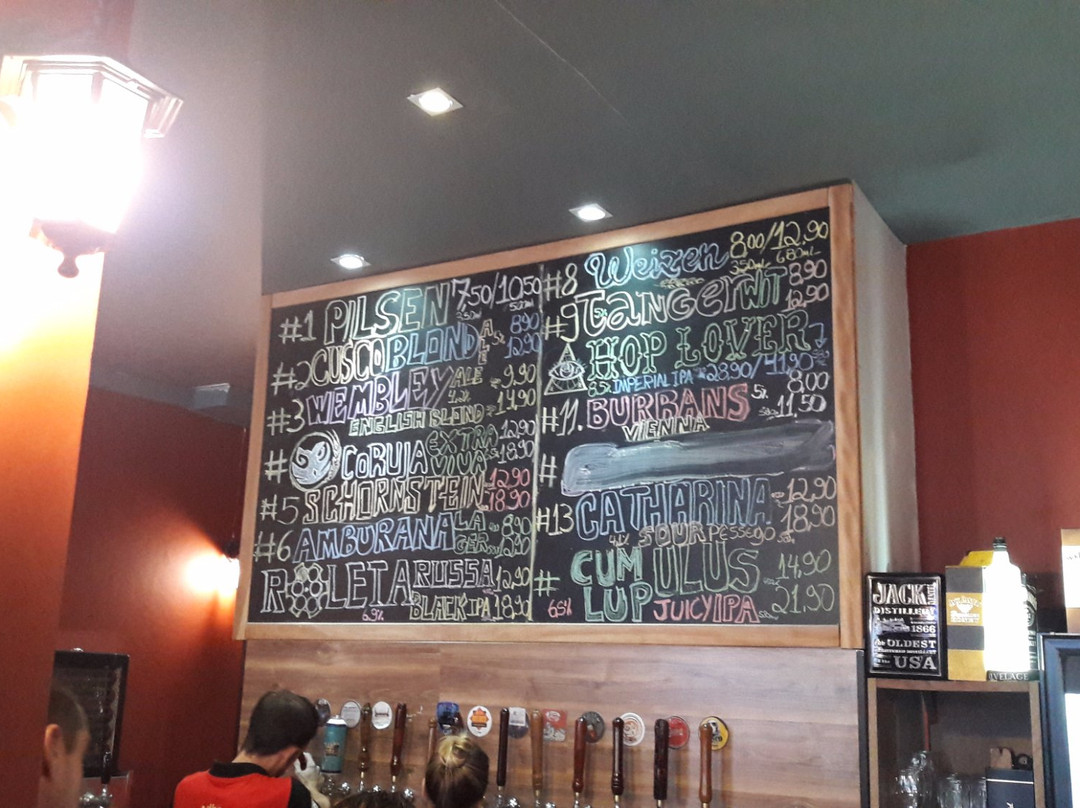 #1 PILSEN 7,50/10,50
#2 CUSCO BLOND ALE 8,90
12,90
#3 WEMBLEY ALE 9,90
ENGLISH BLOND 14,90
# CORUJA EXTRA VIVA 12,90
18,90
#5 SCHORNSTEIN 12,90
18,90
#6 AMBURANA LAGER 8,90
12,90
ROLETA RUSSA 12,90
6,9% BLACK IPA 18,90
#8 Weizen 8,00/12,90
350ml 680ml
#9 Tanger WIT 8,90
12,90
HOP LOVER
8,5% IMPERIAL IPA 28,90/41,90
#11. BURBANS 5% 8,00
VIENNA 11,50
#
#13 CATHARINA 12,90
4,1% SOUR PESSEGO 18,90
# CUMULUS 14,90
6,5% LUP JUICY IPA 21,90
JACK
DISTILLERY
1866
OLDEST
in the USA